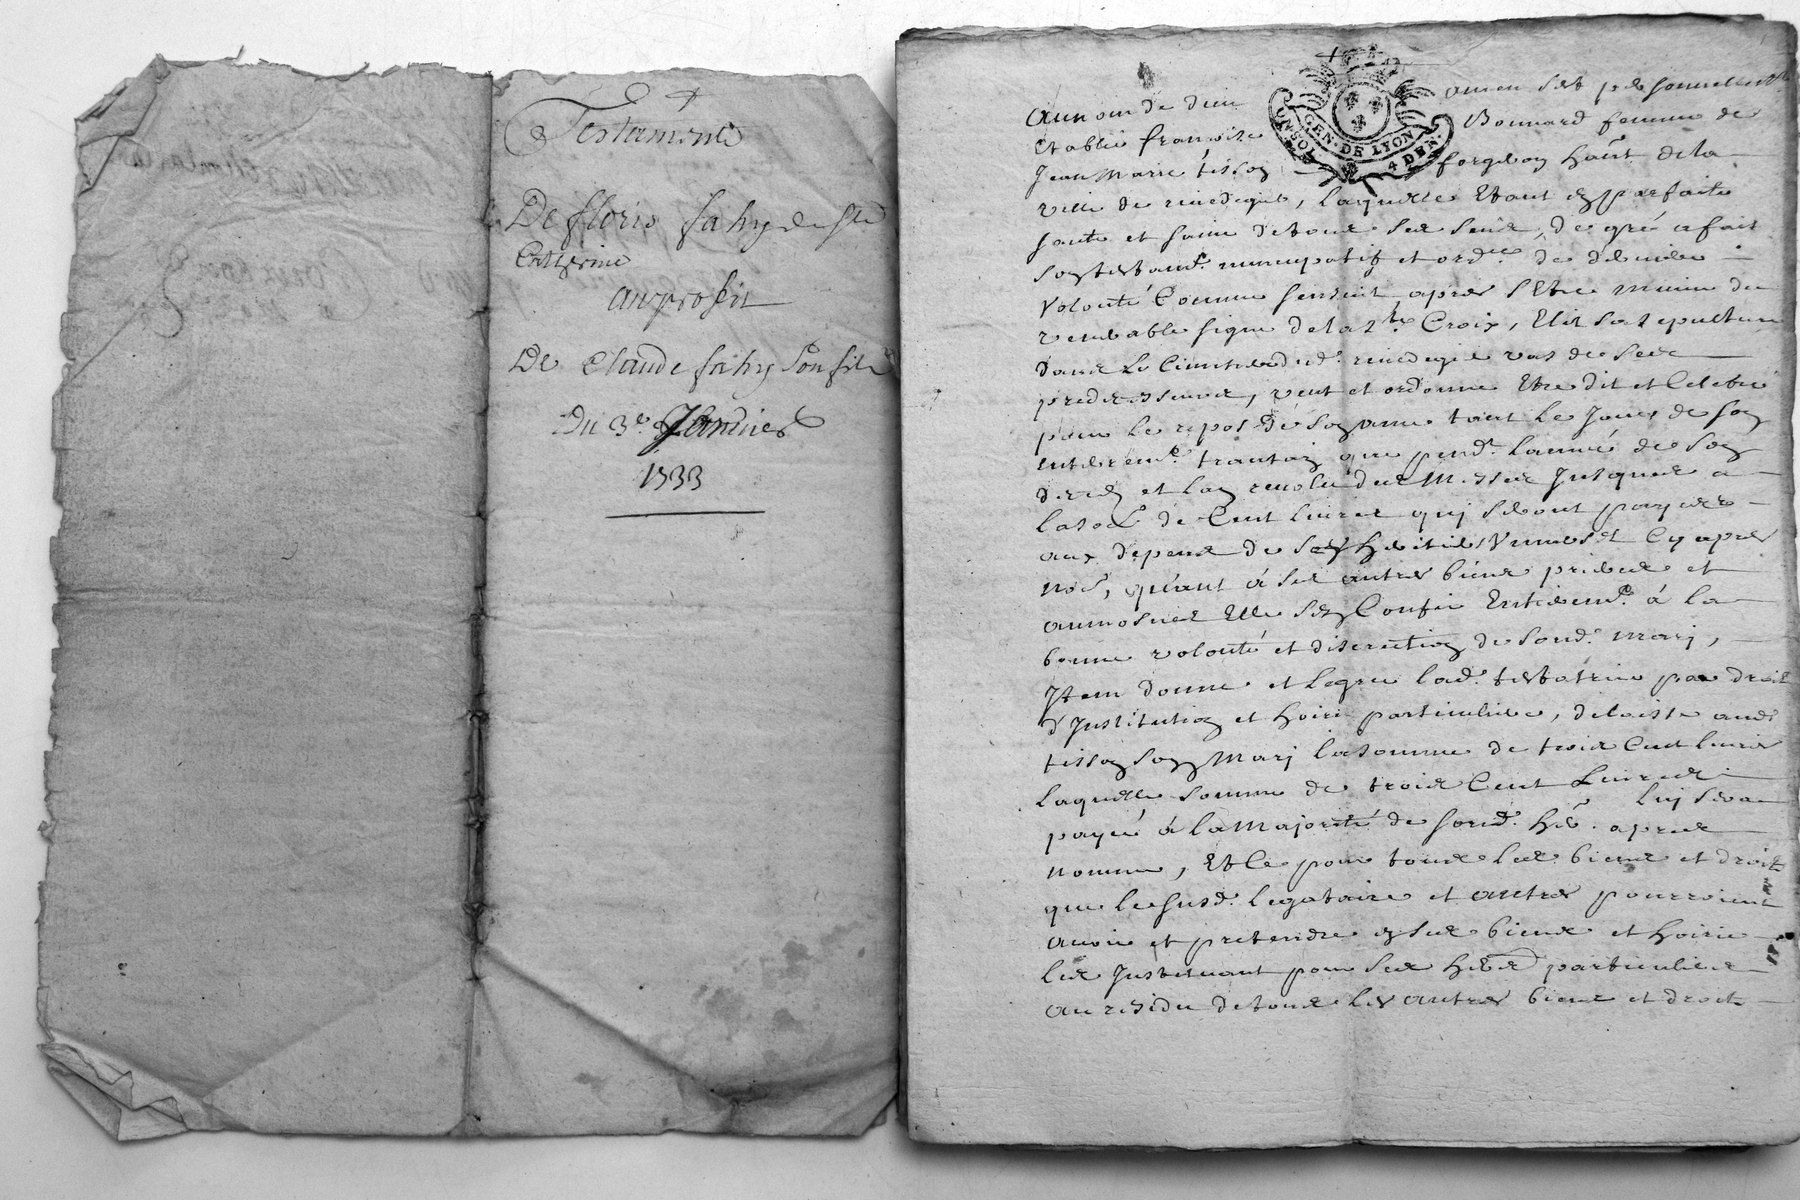 Testament
De floris fahy de Ste
Catherine
au profit
De Claude fahy son fils
Du 3e Janvier
1533
GEN·DE LYON
4 DEN·
Au nom de dieu amen sest personellemt
Establie françoise Bonnard femme de
Jean Marie tisson forgeron hant de la
ville de rivedegier, laquelle Etant en parfaite
santé et saine de tous ses sens, de gré a fait
son testamt nuncupatif et ordce de derniere
volonté Comme sensuit, apres sestre munie du
venerable signe de la Ste Croix, Elit sa sepulture
dans Le Cimetiere dud. rivedegier vas de ses
predecesseurs, veut et ordonne Etre dit et Celebré
pour le repos de son ame tant le Jour de son
enterremt que pendt lannée de son
deces et lan revolu des Messes Jusques a
la some de Cent livres qui seront payées
aux depens de son heritier Cy apres
nomé, quant à ses autres biens prieres et
aumosnes Elle sen Confie Entieremt à la
bonne volonté et discretion de sond. mari,
Item donne et legue lad. testatrice par droit
d'Institution et hoirie particuliere, delaisse aud.
tisson son Mari la somme de trois Cent livres
laquelle somme de trois Cent Livres lui sera
payée à la Majorité de sond. her. apres
nommé, Et Ce pour tous les biens et droits
que le susd. legataire et autres pourroient
avoir et pretendre en ses biens et hoirie
les Instituant pour ses hers particuliers
au residu de tous les autres biens et droits